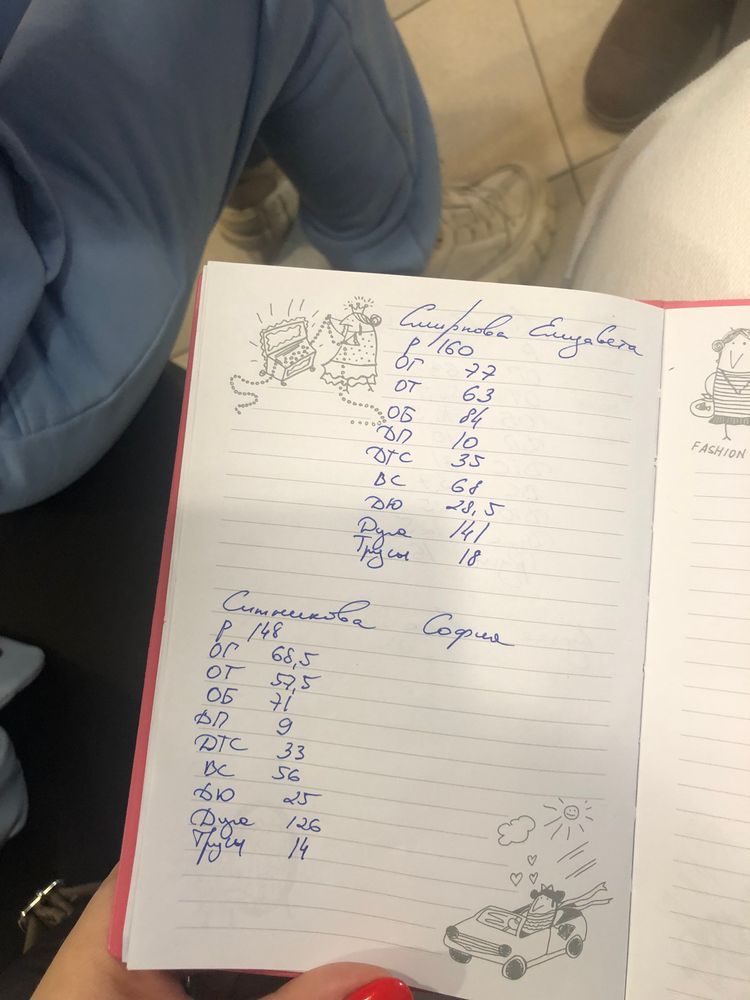 Смирнова Елизавета
Р 160
ОГ 77
ОТ 63
ОБ 84
ДП 10
ДТС 35
ВС 68
ДЮ 28,5
Дуга 141
Трусы 18
Ситникова София
Р 148
ОГ 68,5
ОТ 57,5
ОБ 71
ДП 9
ДТС 33
ВС 56
ДЮ 25
Дуга 126
Трусы 14
FASHION